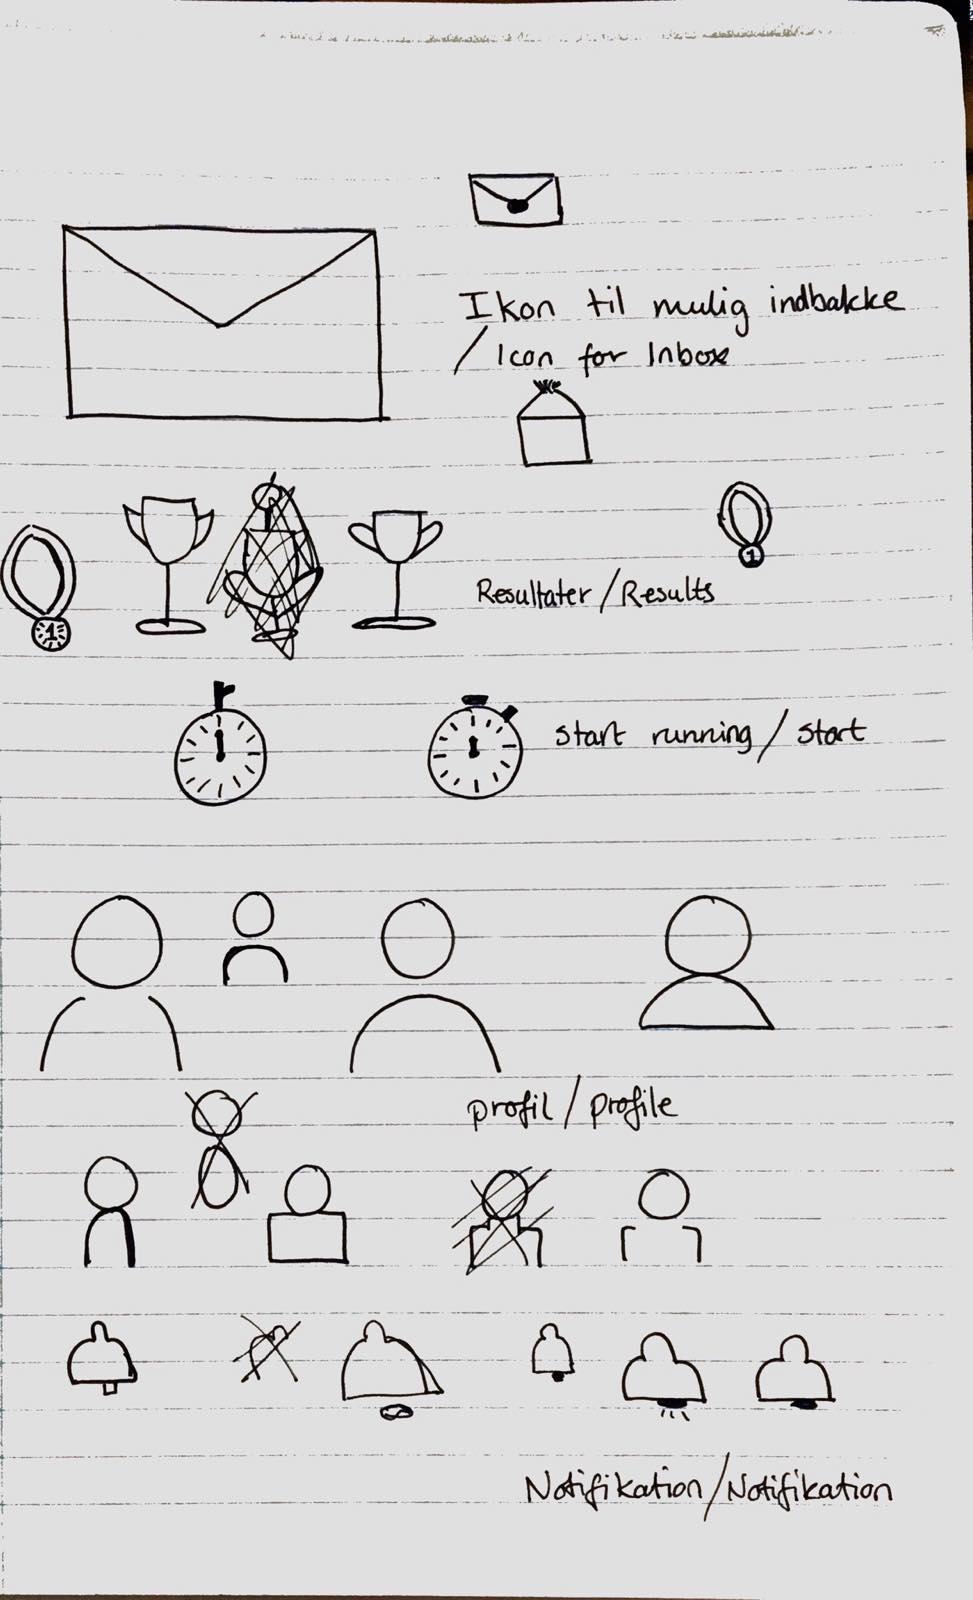 Ikon til mulig indbakke
/ Icon for Inbox
1
1
Resultater / Results
start running / start
profil / profile
Notifikation / Notifikation